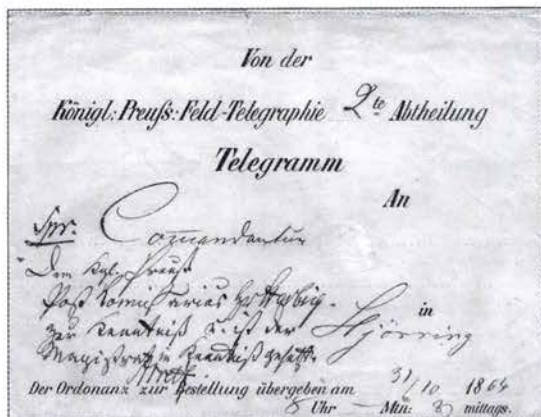 Von der
Königl: Preuß: Feld-Telegraphie 2te Abtheilung
Telegramm
An
Commandantur
Dem Kgl. Preuß
Post
in
zur Kenntniß u. ist der Hjörring
Magistrat in Kenntniß gesetzt.
Der Ordonanz zur Bestellung übergeben am 31/10 1864
8 Uhr — Min: mittags.